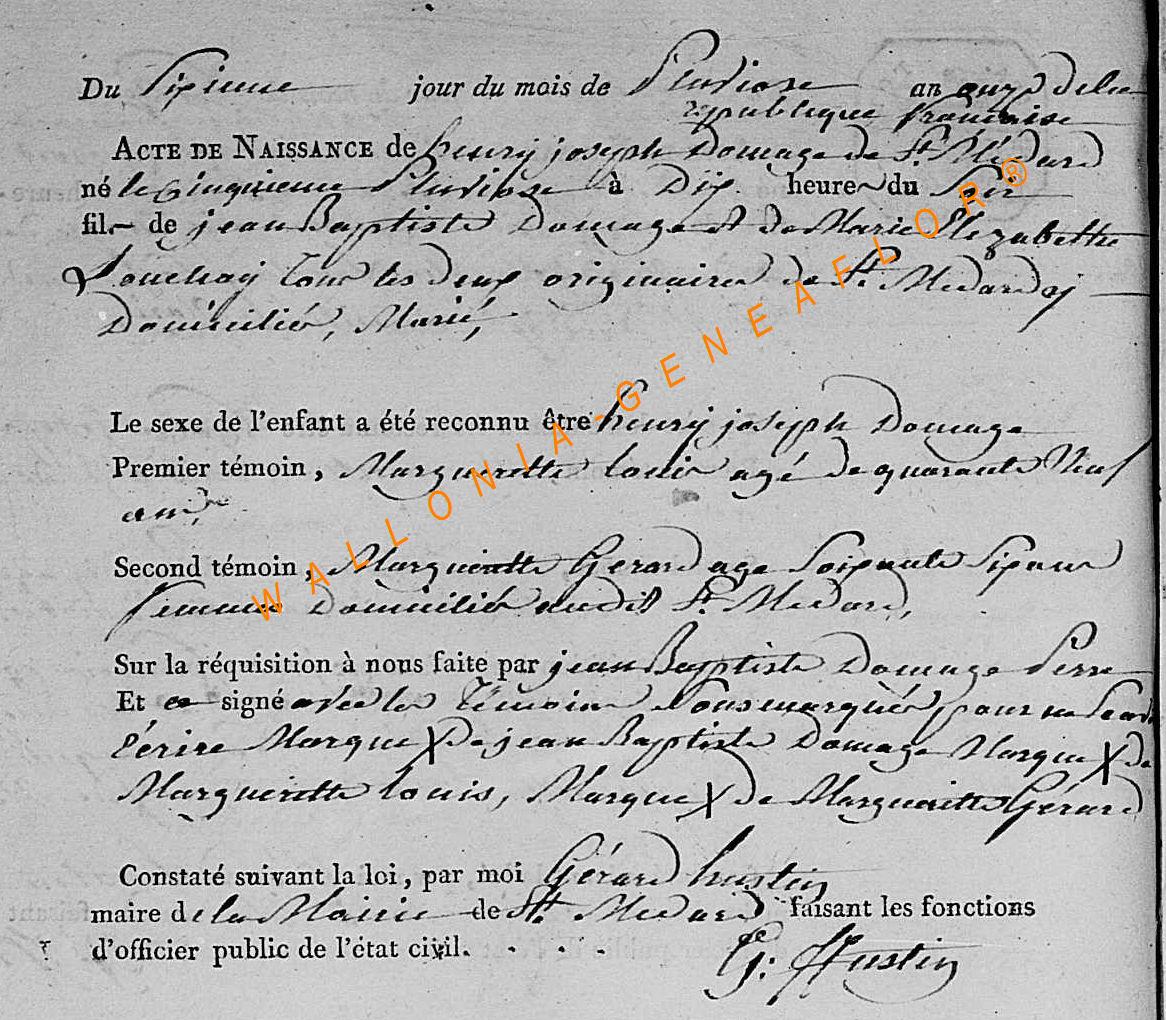 Du Sixieme jour du mois de Pluviose an onze de la
republique francaise
ACTE DE NAISSANCE de henry joseph Domage de St. Médard
né le cinquieme Pluviose à Dix heures du Soir
fils de jean Baptiste Domage et de Marie Elizabethe
Louchay tous les deux originaires de St. Medard y
Domiciliés, Marié,
Le sexe de l'enfant a été reconnu être henry joseph Domage
Premier témoin, Marguerette Louis agé de quarante Neuf
ans,
Second témoin, Marguerette Gerard age Soixante Six ans
femmes Domiciliés audit St. Medard,
Sur la réquisition à nous faite par jean Baptiste Domage Perre
Et signé avec les Témoins Sousmarqués pour ne Scavoir
l'écrire Marque X De jean Baptiste Domage Marque X de
Marguerette Louis, Marque X de Marguerette Gérard
Constaté suivant la loi, par moi Gérard hustin
maire de la Mairie de St. Medard faisant les fonctions
d'officier public de l'état civil.
G: Hustin
WALLONIA-GENEAFLOR®